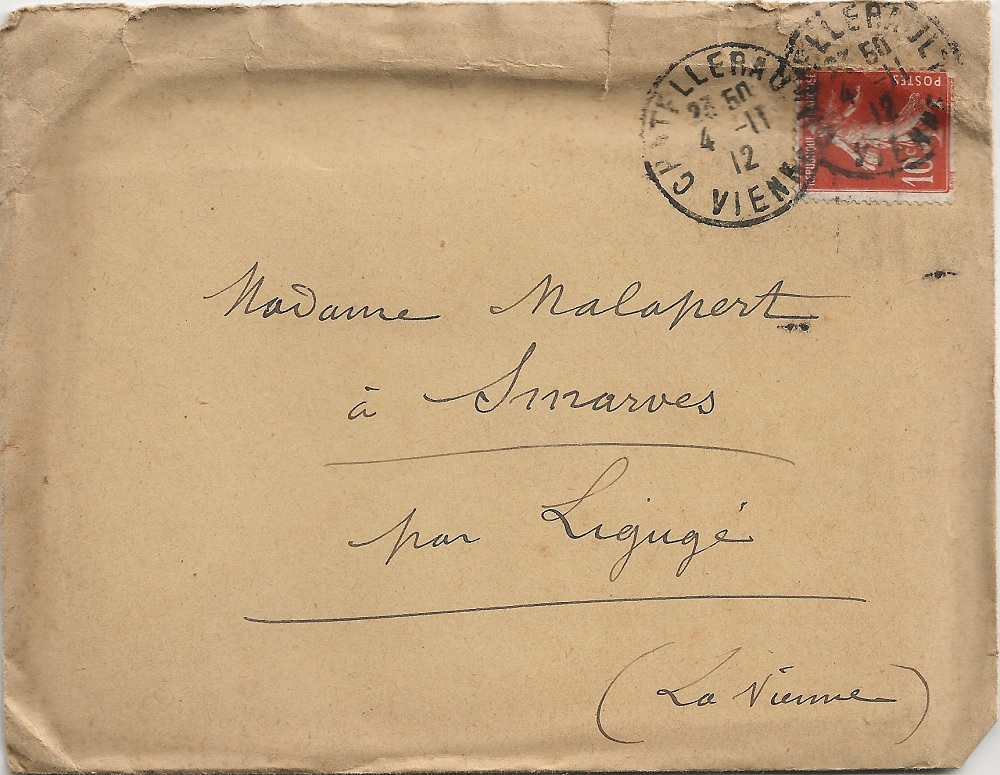 CHATELLERAULT
23 50
4 -11
12
VIENNE
CHATELLERAULT
23 50
4 -11
12
VIENNE
POSTES
REPUBLIQUE FRANÇAISE
10c
Madame Malapert
à Smarves
par Ligugé
(La Vienne)